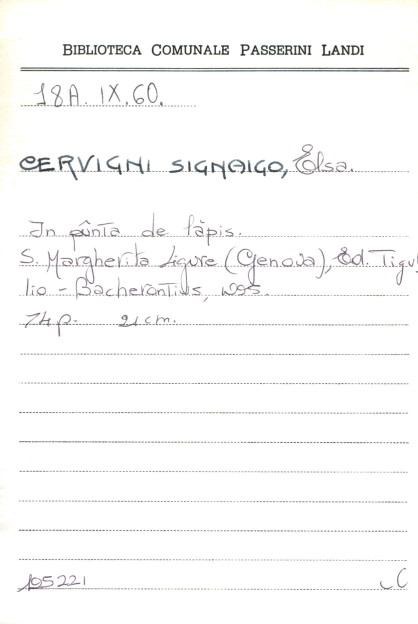 BIBLIOTECA COMUNALE PASSERINI LANDI
18A. IX. 60.
CERVIGNI SIGNAIGO, Elsa.
In pûnta de làpis.
S. Margherita Ligure (Genova), Ed. Tigul
lio - Bacherontius, 1995.
74 p. 21 cm.
105221